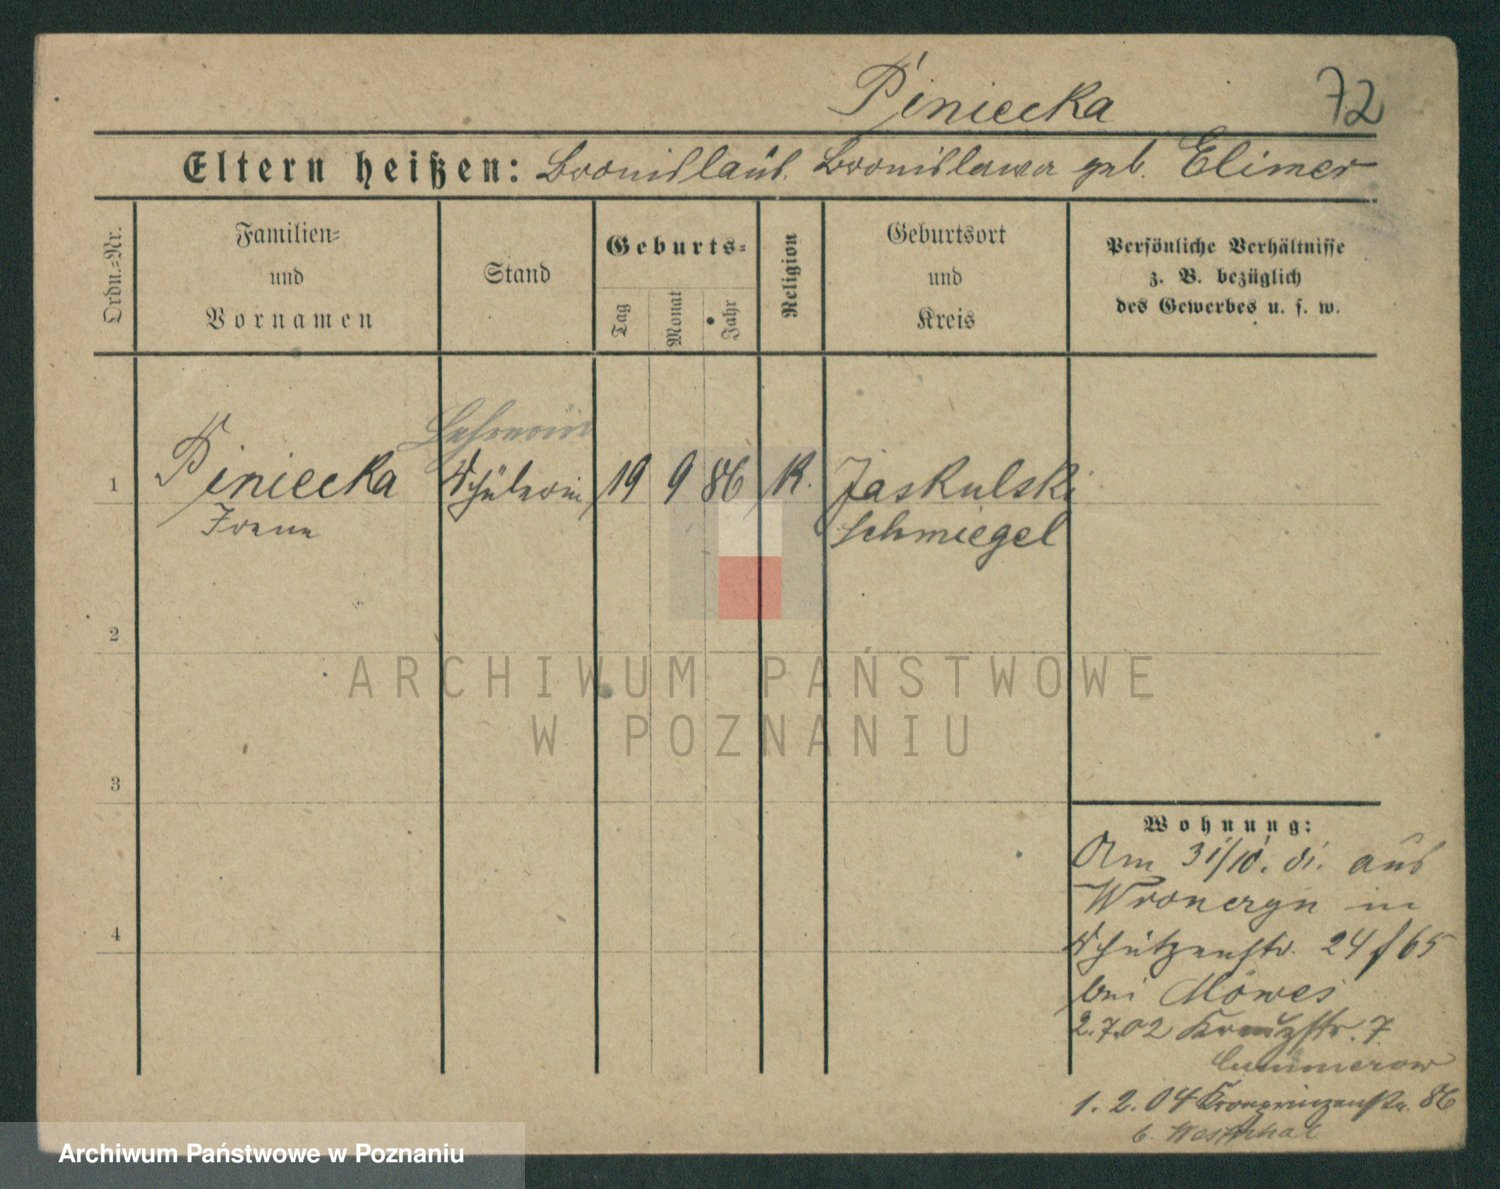 Piniecka 72
Eltern heißen: Bronislaus. Bronislawa geb. Elimer
Ordn.-Nr.
Familien-
und
Vornamen
Stand
Geburts-
Tag
Monat
Jahr
Religion
Geburtsort
und
Kreis
Persönliche Verhältnisse
z. B. bezüglich
des Gewerbes u. s. w.
Lehrerin
1 Piniecka Schülerin 19 9 86 K. Jaskulski
Irene Schmiegel
2
3
4
Wohnung:
Am 31/10. 01. aus
in
Schützenstr. 24 f 65
bei Möwes
2.7.02 Kreuzstr. 7
Cummerow
1. 2. 04 Kronprinzenstr. 86
b. Westphal
ARCHIWUM PAŃSTWOWE
W POZNANIU
Archiwum Państwowe w Poznaniu